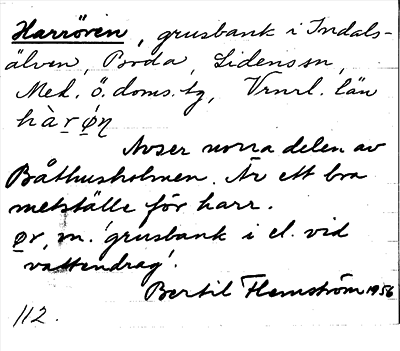 Harrören, grusbank i Indals-
älven, Boda, Lidens sn,
Med. ö. doms. tg, Vrnrl. län
hàrǿn
Avser norra delen av
Båthusholmen. Är ett bra
metställe för harr.
ør, m. 'grusbank i el. vid
vattendrag'.
Bertil Flemström 1956
112.